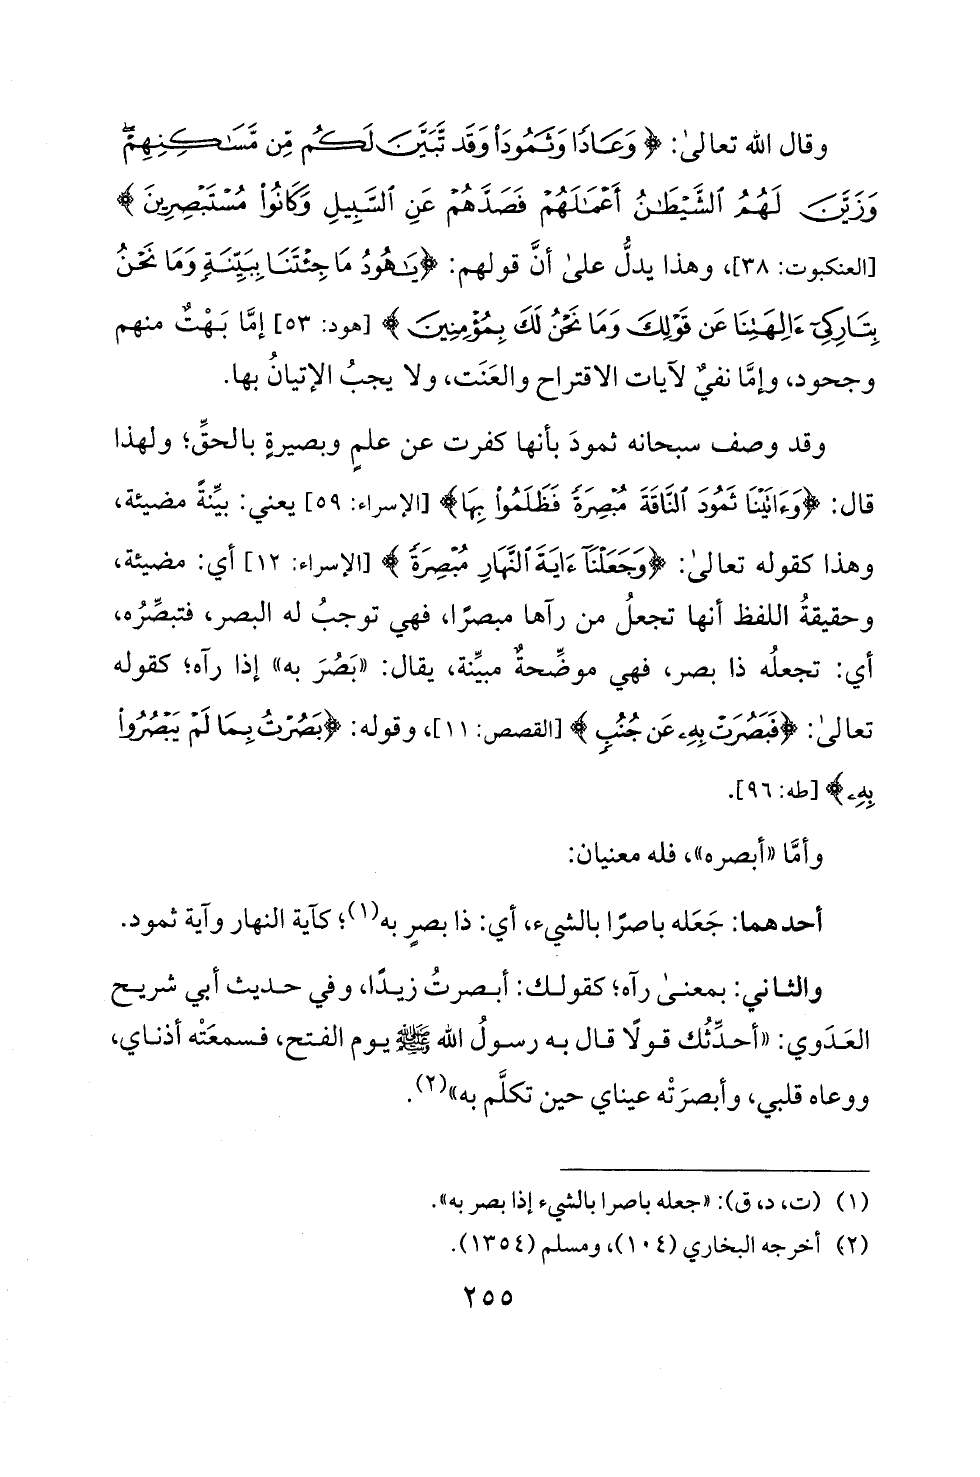 وقال الله تعالىٰ: ﴿وَعَادًا وَثَمُودَا۟ وَقَد تَّبَيَّنَ لَكُم مِّن مَّسَاكِنِهِمْ ۖ
وَزَيَّنَ لَهُمُ ٱلشَّيْطَٰنُ أَعْمَٰلَهُمْ فَصَدَّهُمْ عَنِ ٱلسَّبِيلِ وَكَانُوا۟ مُسْتَبْصِرِينَ﴾
[العنكبوت: ٣٨]، وهذا يدلُّ علىٰ أنَّ قولهم: ﴿يَٰهُودُ مَا جِئْتَنَا بِبَيِّنَةٍ وَمَا نَحْنُ
بِتَارِكِىٓ ءَالِهَتِنَا عَن قَوْلِكَ وَمَا نَحْنُ لَكَ بِمُؤْمِنِينَ﴾ [هود: ٥٣] إمَّا بَهْتٌ منهم
وجحود، وإمَّا نفيٌ لآيات الاقتراح والعَنَت، ولا يجبُ الإتيانُ بها.
وقد وصف سبحانه ثمودَ بأنها كفرت عن علمٍ وبصيرةٍ بالحقِّ؛ ولهذا
قال: ﴿وَءَاتَيْنَا ثَمُودَ ٱلنَّاقَةَ مُبْصِرَةً فَظَلَمُوا۟ بِهَا﴾ [الإسراء: ٥٩] يعني: بيِّنةً مضيئة،
وهذا كقوله تعالىٰ: ﴿وَجَعَلْنَآ ءَايَةَ ٱلنَّهَارِ مُبْصِرَةً﴾ [الإسراء: ١٢] أي: مضيئة،
وحقيقةُ اللفظ أنها تجعلُ من رآها مبصرًا، فهي توجبُ له البصر، فتبصِّرُه،
أي: تجعلُه ذا بصر، فهي موضِّحةٌ مبيِّنة، يقال: «بَصُرَ به» إذا رآه؛ كقوله
تعالىٰ: ﴿فَبَصُرَتْ بِهِۦ عَن جُنُبٍ﴾ [القصص: ١١]، وقوله: ﴿بَصُرْتُ بِمَا لَمْ يَبْصُرُوا۟
بِهِۦ﴾ [طه: ٩٦].
وأمَّا «أبصره»، فله معنيان:
أحدهما: جَعَله باصرًا بالشيء، أي: ذا بصرٍ به(١)؛ كآية النهار وآية ثمود.
والثاني: بمعنىٰ رآه؛ كقولك: أبصرتُ زيدًا، وفي حديث أبي شريح
العَدَوي: «أحدِّثُك قولًا قال به رسولُ الله ﷺ يوم الفتح، فسمعَتْه أذناي،
ووعاه قلبي، وأبصرَتْه عيناي حين تكلَّم به»(٢).
(١) (ت، د، ق): «جعله باصرا بالشيء إذا بصر به».
(٢) أخرجه البخاري (١٠٤)، ومسلم (١٣٥٤).
٢٥٥